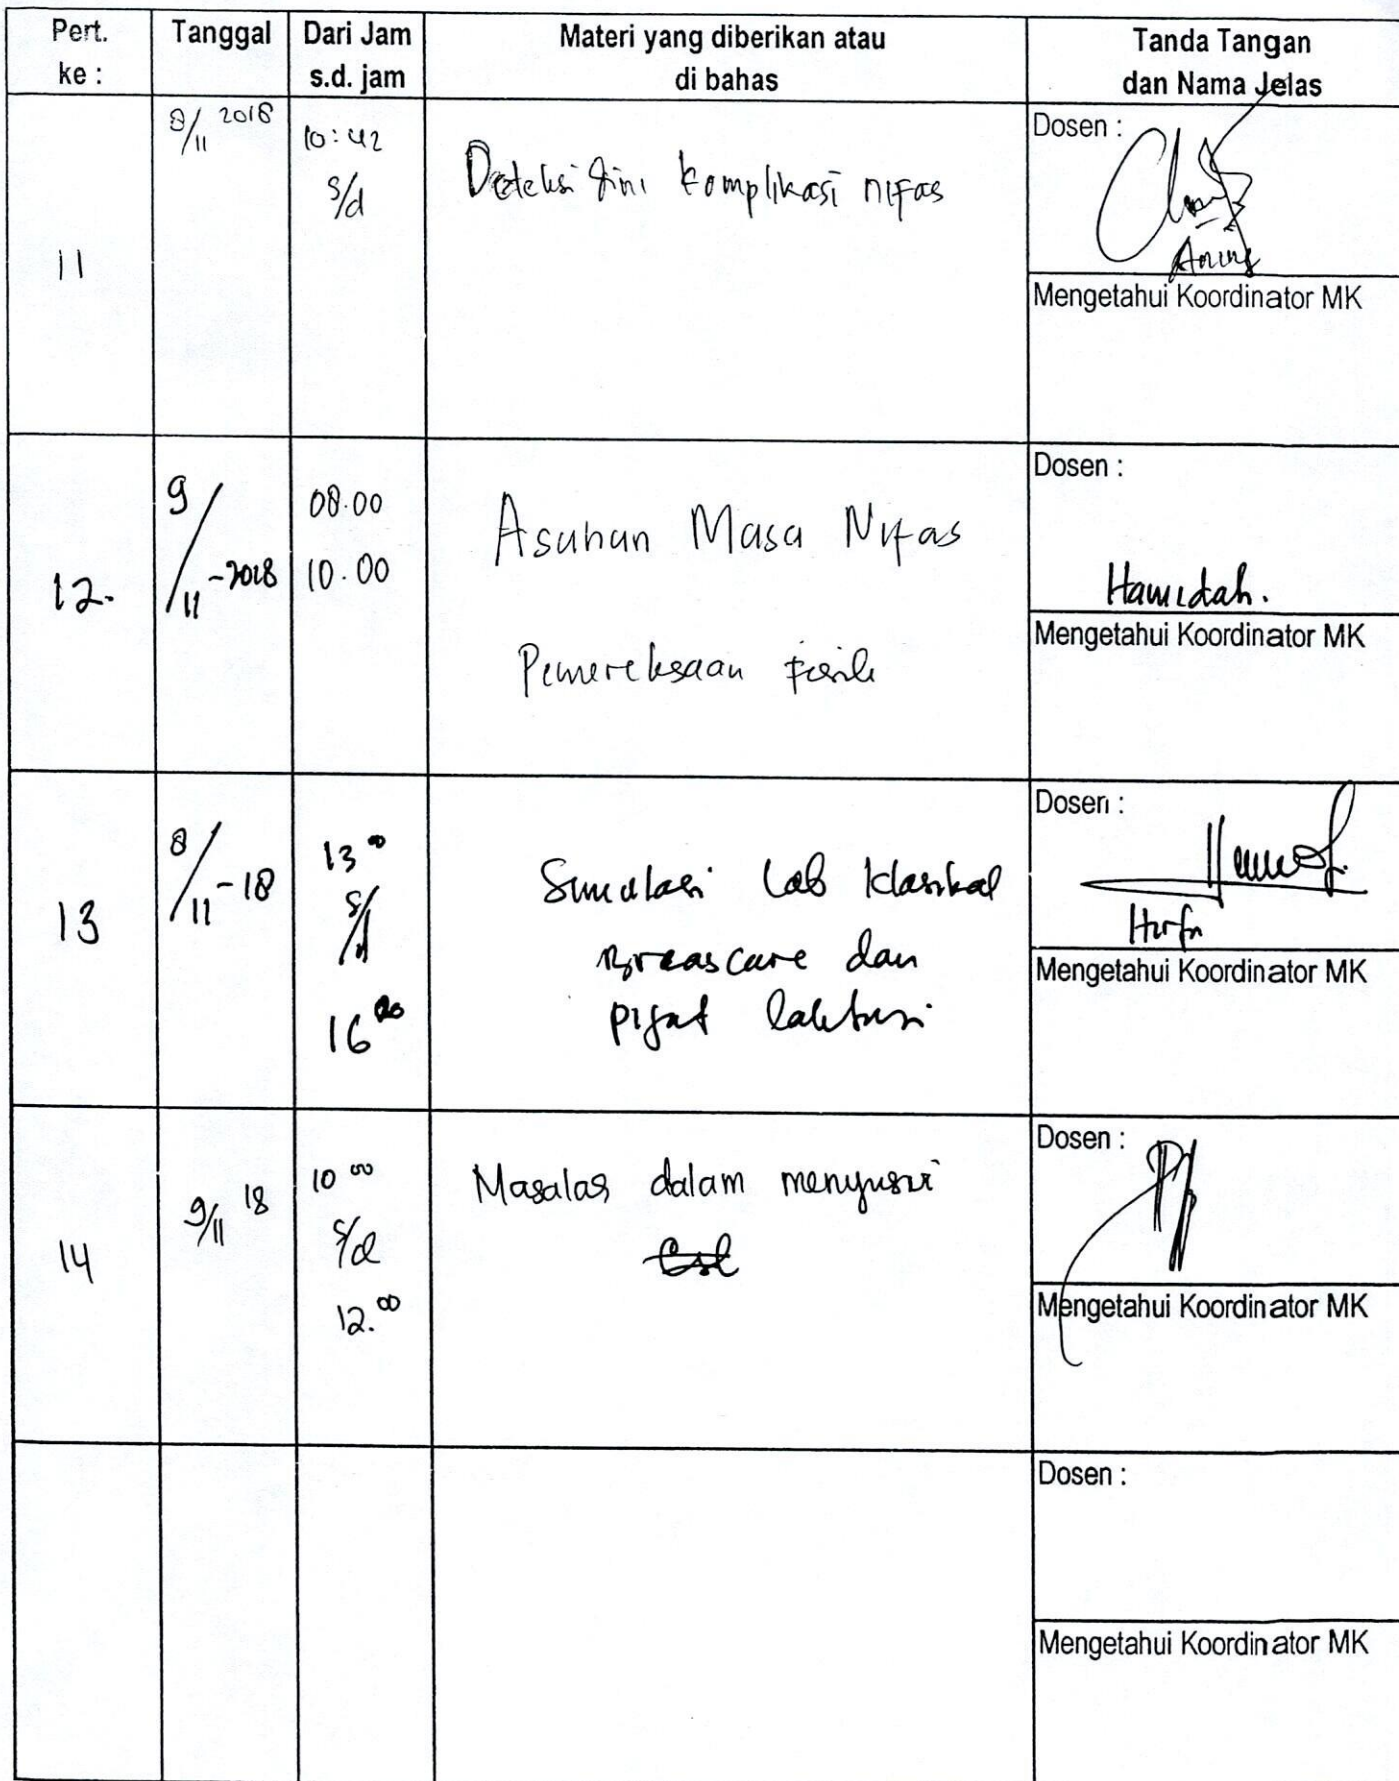 Pert. ke : Tanggal Dari Jam s.d. jam Materi yang diberikan atau di bahas Tanda Tangan dan Nama Jelas
8/11 2018
10:42
s/d
Deteksi dini komplikasi nifas
Dosen :
11
Mengetahui Koordinator MK
12.
9/11-2018
08.00
10.00
Asuhan Masa Nifas
Pemereksaan Fisik
Dosen :
Hamidah.
Mengetahui Koordinator MK
13
8/11-18
13 00
s/d
16 00
Simulasi Lab klasikal
Breascare dan
pijat laktasi
Dosen :
Mengetahui Koordinator MK
14
9/11 18
10 00
s/d
12.00
Masalas dalam menyusui
Dosen :
Mengetahui Koordinator MK
Dosen :
Mengetahui Koordinator MK